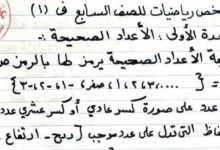 خص رياضيات للصف السابع ف (١)
حدة الأولى: الأعداد الصحيحة :-
ة الأعداد الصحيحة يرمز لها بالرمز ص
= { .... ،٣،٢،١، صفر، -١، -٢، -٣ ....}
عدد على صورة كسر عادي أو كسر عشري عدد
فاظ التي تدل على عدد موجب (ربح - ارتفاع